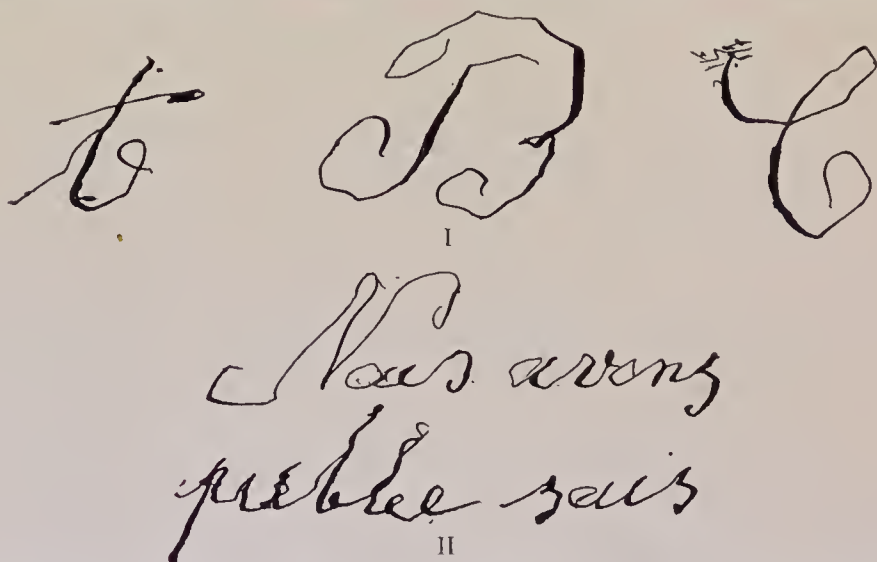 t B C
I
Nous avons
publiée sais
II